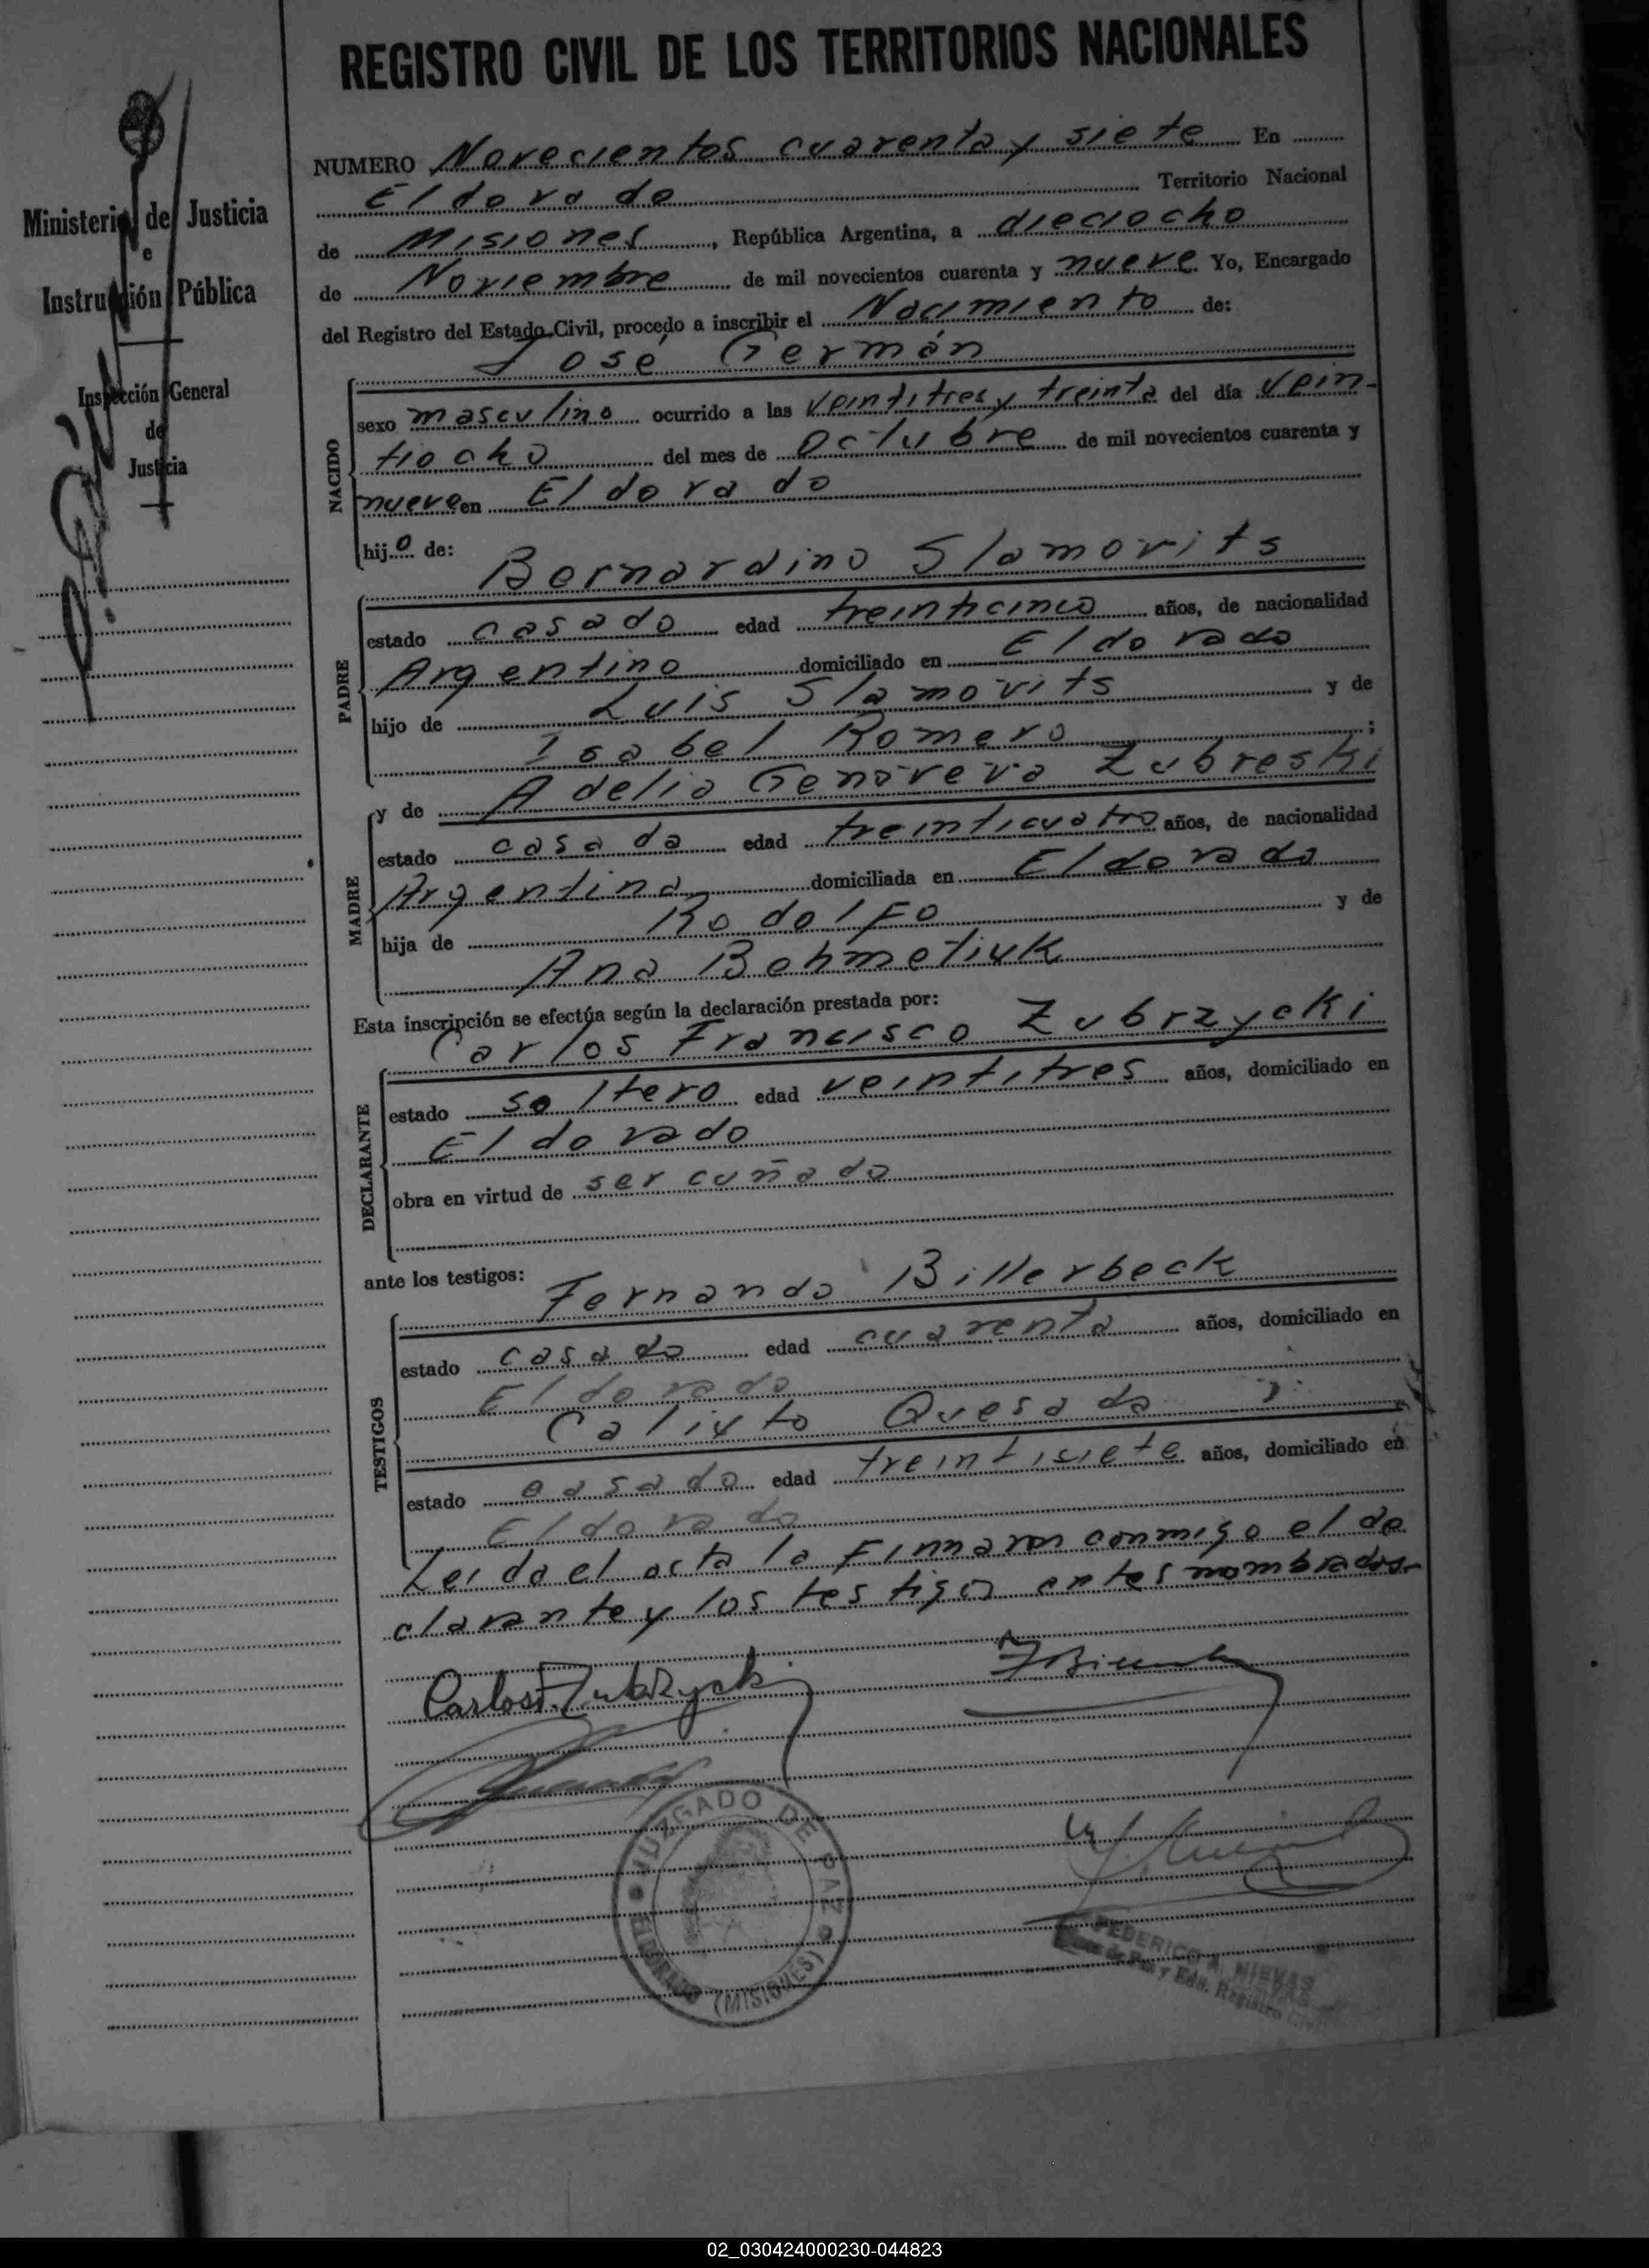 REGISTRO CIVIL DE LOS TERRITORIOS NACIONALES
Ministerio de Justicia
e
Instrucción Pública
Inspección General
de
Justicia
NUMERO Novecientos cuarenta y siete En
Eldorado Territorio Nacional
de Misiones, República Argentina, a dieciocho
de Noviembre de mil novecientos cuarenta y nueve Yo, Encargado
del Registro del Estado Civil, procedo a inscribir el Nacimiento de:
José Germán
NACIDO
sexo masculino ocurrido a las veintitres y treinta del día vein-
tiocho del mes de Octubre de mil novecientos cuarenta y
nueve en Eldorado
hijo de:
Bernardino Slamovits
PADRE
estado casado edad treinticinco años, de nacionalidad
Argentino domiciliado en Eldorado
hijo de Luis Slamovits y de
Isabel Romero ;
y de Adelia Genoveva Zubreski
MADRE
estado casada edad treinticuatro años, de nacionalidad
Argentina domiciliada en Eldorado
hija de Rodolfo y de
Ana Bohmeliuk
Esta inscripción se efectúa según la declaración prestada por:
Carlos Francisco Zubrzycki
DECLARANTE
estado soltero edad veintitres años, domiciliado en
Eldorado
obra en virtud de ser cuñado
ante los testigos:
Fernando Billerbeck
TESTIGOS
estado casado edad cuarenta años, domiciliado en
Eldorado
Calixto Quesada
estado casado edad treintisiete años, domiciliado en
Eldorado
Leída el acta la firmaron conmigo el de
clarante y los testigos antes nombrados-
Carlos F. Zubrzycki
JUZGADO DE PAZ
ELDORADO (MISIONES)
FEDERICO A. NIEVAS
Juez de Paz y Edo. Registro Civil
02_030424000230-044823